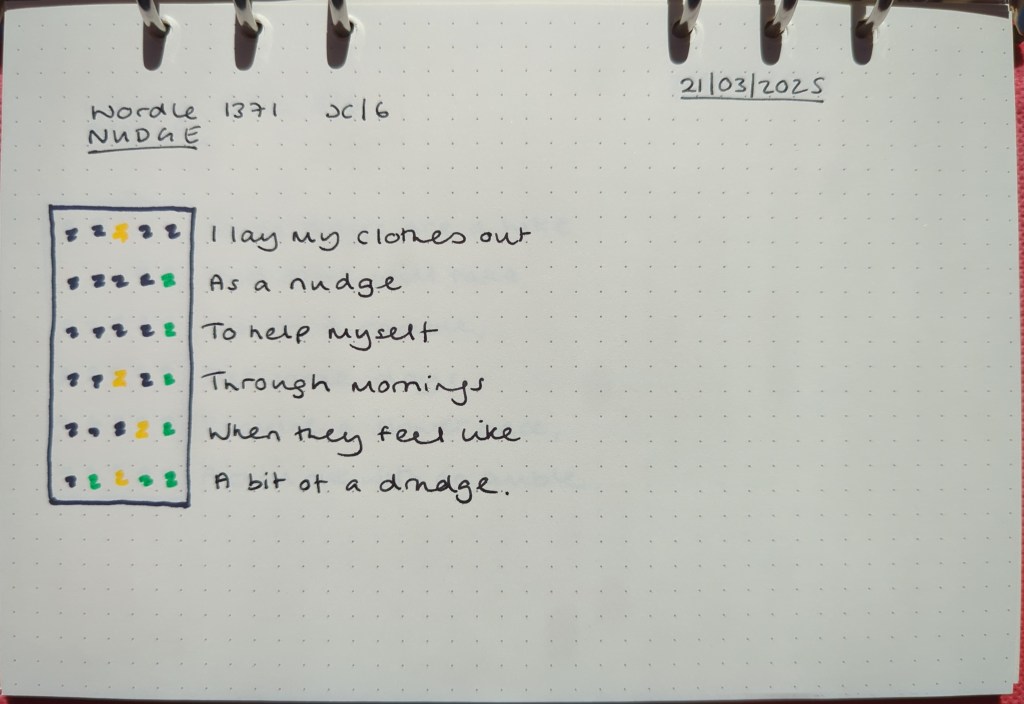 21/03/2025
Wordle 1371 X/6
NUDGE
I lay my clothes out
As a nudge
To help myself
Through mornings
When they feel like
A bit of a drudge.